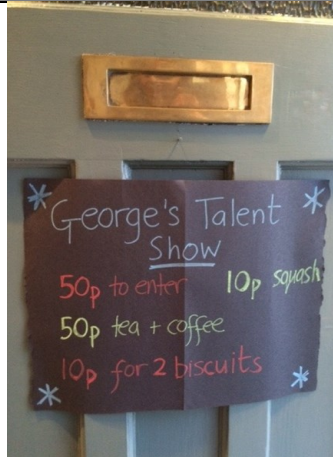 George's Talent
Show
50p to enter
10p squash
50p tea + coffee
10p for 2 biscuits